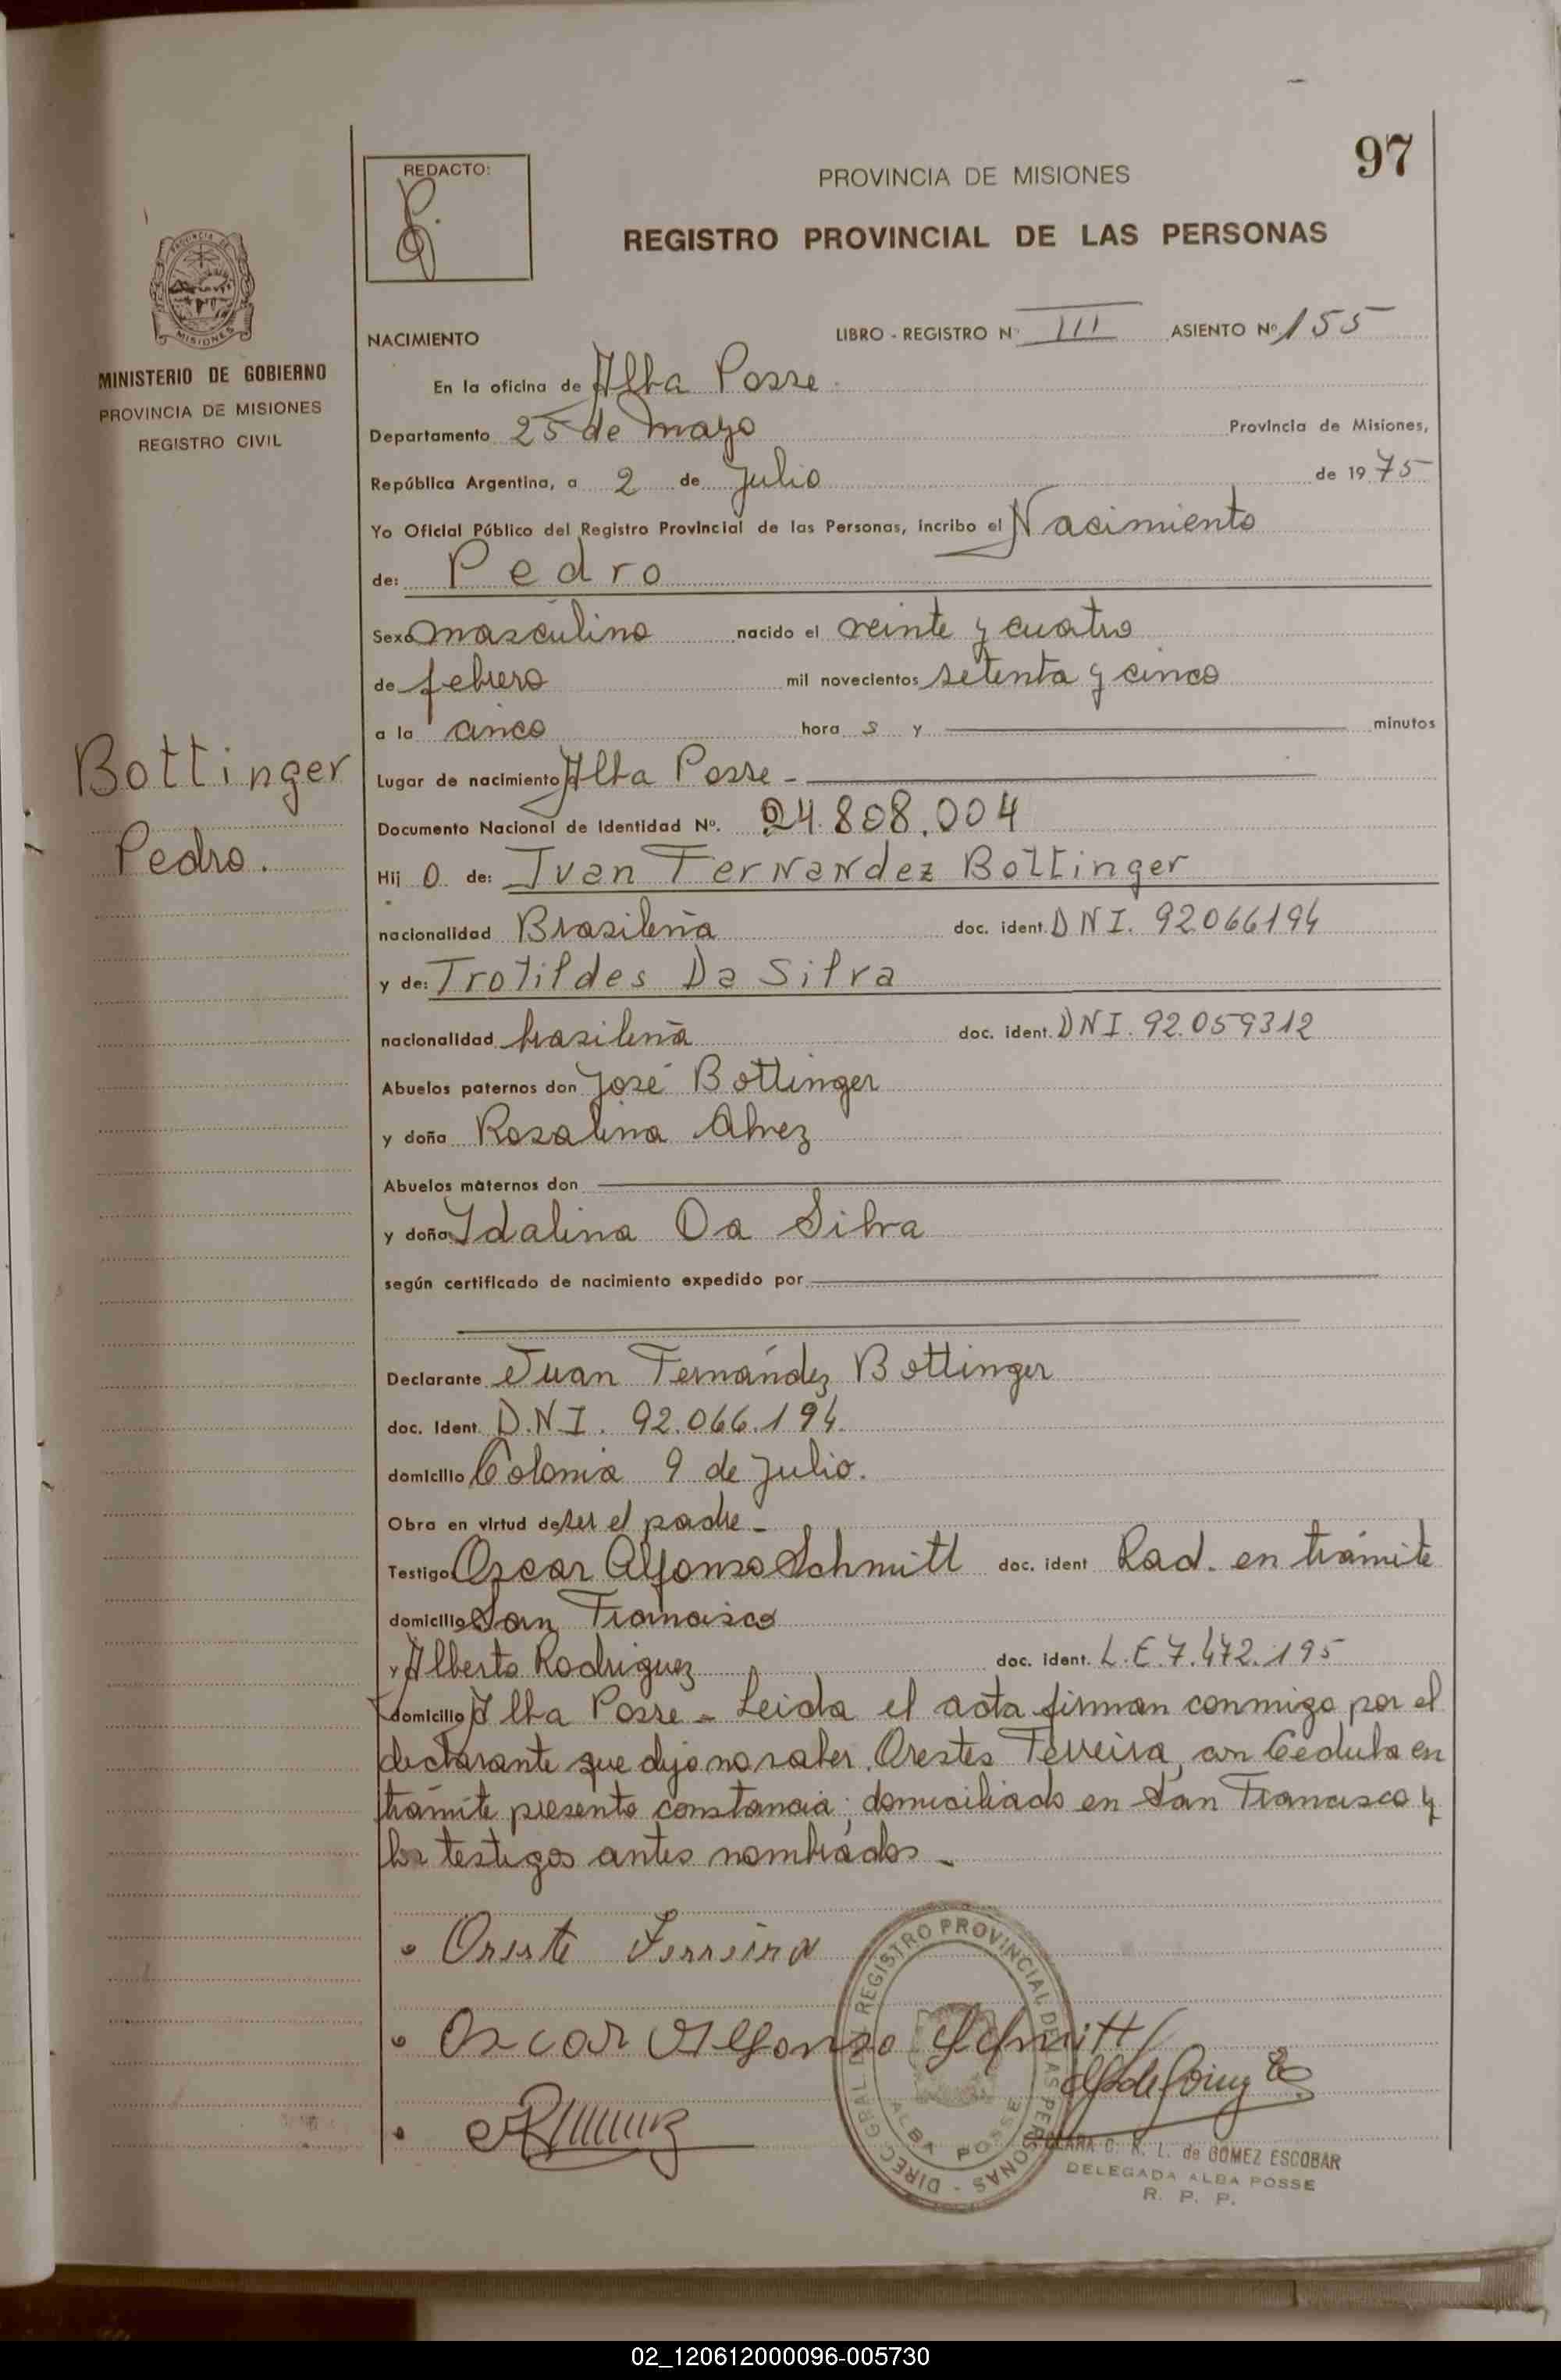 97
REDACTO:
PROVINCIA DE MISIONES
REGISTRO PROVINCIAL DE LAS PERSONAS
PROVINCIA DE
MISIONES
MINISTERIO DE GOBIERNO
PROVINCIA DE MISIONES
REGISTRO CIVIL
NACIMIENTO LIBRO - REGISTRO Nº III ASIENTO Nº 155
En la oficina de Alba Posse
Departamento 25 de Mayo Provincia de Misiones,
República Argentina, a 2 de Julio de 1975
Yo Oficial Público del Registro Provincial de las Personas, incribo el Nacimiento
de: Pedro
Sexo masculino nacido el veinte y cuatro
de febrero mil novecientos setenta y cinco
a la cinco hora s y minutos
Bottinger
Pedro.
Lugar de nacimiento Alba Posse -
Documento Nacional de Identidad Nº. 24.808.004
Hij o de: Juan Fernandez Bottinger
nacionalidad Brasileña doc. ident. DNI. 92.066194
y de: Trotildes Da Silva
nacionalidad brasileña doc. ident. DNI. 92.059312
Abuelos paternos don José Bottinger
y doña Rosalina Alvez
Abuelos maternos don
y doña Idalina Da Silva
según certificado de nacimiento expedido por
Declarante Juan Fernández Bottinger
doc. Ident. D.N.I. 92.066.194.
domicilio Colonia 9 de Julio.
Obra en virtud de ser el padre -
Testigo Oscar Alfonso Schmitt doc. ident Rad. en trámite
domicilio San Francisco
y Alberto Rodriguez doc. ident. L.E. 7.472.195
domicilio Alba Posse - Leida el acta firman conmigo por el
declarante que dijo no saber. Orestes Ferreira, con Cedula en
trámite presento constancia; domiciliado en San Francisco y
los testigos antes nombrados -
Oreste Ferreira
Oscar Alfonso Schmitt
DIREC. GRAL. DEL REGISTRO PROVINCIAL DE LAS PERSONAS -
ALBA POSSE
CLARA C. K. L. de GOMEZ ESCOBAR
DELEGADA ALBA POSSE
R. P. P.
02_120612000096-005730